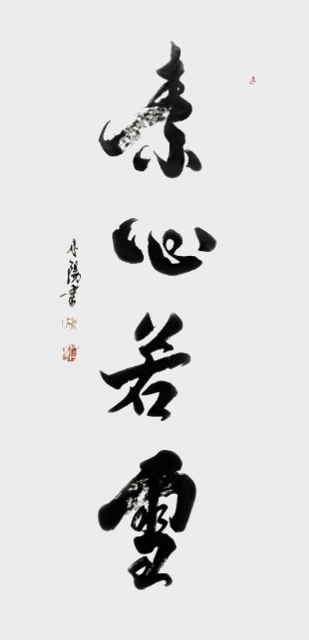 素心若雪
丹陽書